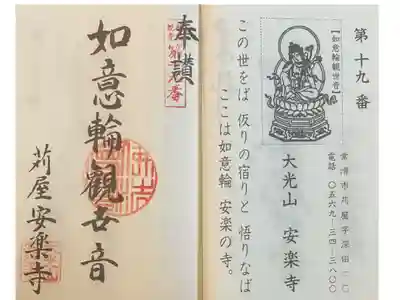 第十九番
常滑市苅屋字深田一〇一
電話 〇五六九-三四-三八〇〇
【如意輪観世音】
大光山 安楽寺
この世をば 仮りの宿りと悟りなば
ここは如意輪 安楽の寺。
奉讃
第十九番
如意輪觀世音
苅屋安楽寺